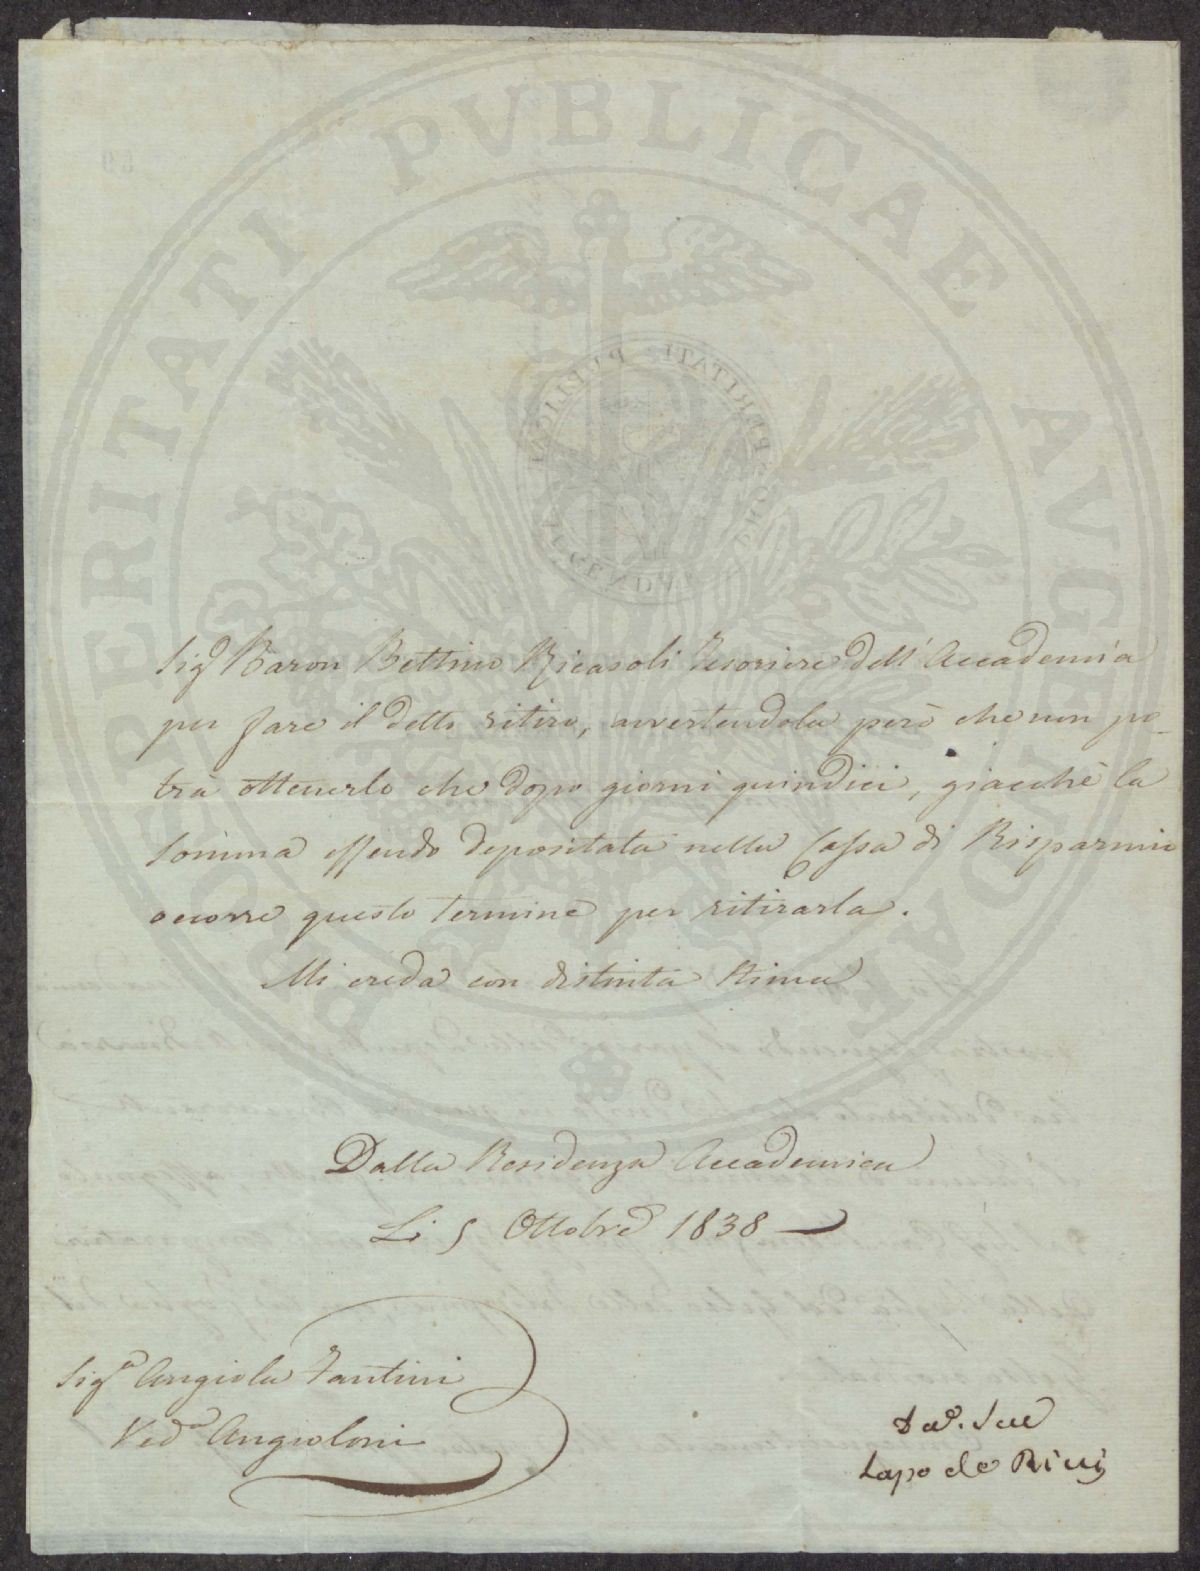 PROSPERITATI PVBLICAE AVGENDAE
Sigr Baron Bettino Ricasoli Tesoriere dell' Accademia
per fare il detto ritiro, avvertendola però che non po-
trà ottenerlo che dopo giorni quindici, giacchè la
somma essendo depositata nella Cassa di Risparmio
occorre questo termine per ritirarla.
Mi creda con distinta stima
Dalla Residenza Accademica
Li 5 Ottobre 1838
Siga Angiola Fantini
Veda Angioloni
Lapo de Ricci